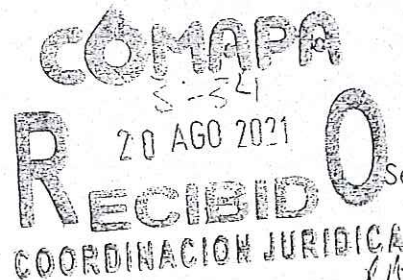 COMAPA
20 AGO 2021
RECIBIDO
Se
COORDINACION JURIDICA